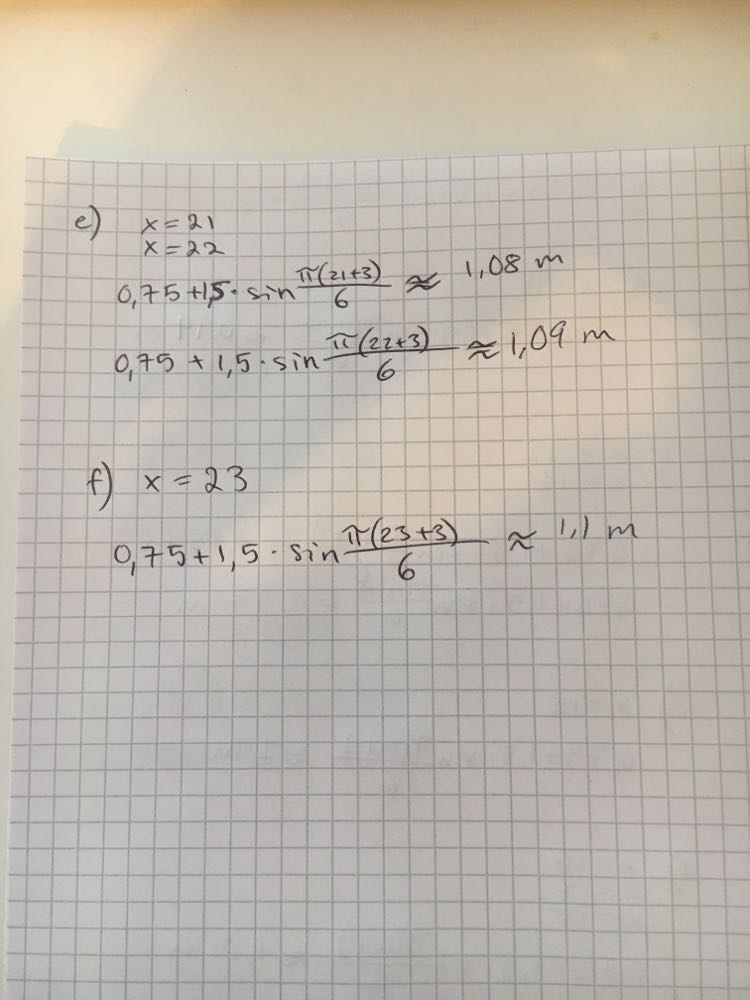 e) x = 21
x = 22
0,75 + 1,5 · sin π(21+3)/6 ≈ 1,08 m
0,75 + 1,5 · sin π(22+3)/6 ≈ 1,09 m
f) x = 23
0,75 + 1,5 · sin π(23+3)/6 ≈ 1,1 m